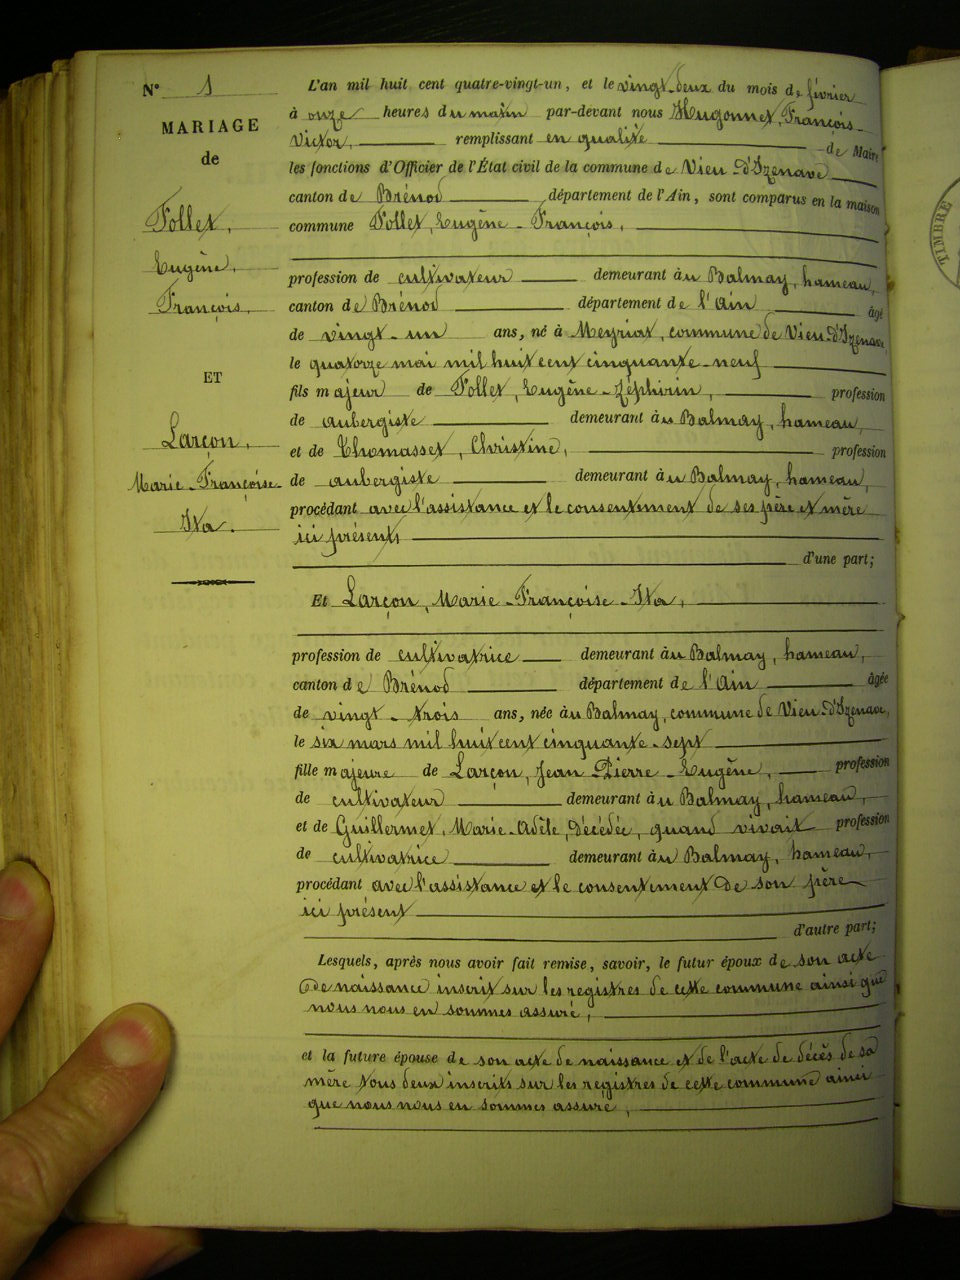 N° 1
MARIAGE
de
Tollet,
Eugène,
François,
ET
Larçon,
Marie-Françoise-
Ita.
L'an mil huit cent quatre-vingt-un, et le vingt-deux du mois de février
à onze heures du matin par-devant nous Hugonnet, François-
Victor, remplissant en qualité de Maire
les fonctions d'Officier de l'État civil de la commune de Vieu d'Izenave
canton de Brénod département de l'Ain, sont comparus en la maison
commune Tollet, Eugène-François,
profession de cultivateur demeurant au Balmay, hameau,
canton de Brénod département de l'Ain âgé
de vingt-un ans, né à Meyriat, commune de Vieu-d'Izenave
le quatorze mai mil huit cent cinquante-neuf
fils majeur de Tollet, Eugène-Zéphirin, profession
de aubergiste demeurant au Balmay, hameau,
et de Thomasset, Christine, profession
de aubergiste demeurant au Balmay, hameau,
procédant avec l'assistance et le consentement de ses père et mère
ici présents
d'une part;
Et Larçon, Marie-Françoise-Ita,
profession de cultivatrice demeurant au Balmay, hameau,
canton de Brénod département de l'Ain âgée
de vingt-trois ans, née au Balmay, commune de Vieu-d'Izenave,
le six mars mil huit cent cinquante-sept
fille majeure de Larçon, Jean Pierre-Eugène, profession
de cultivateur demeurant au Balmay, hameau,
et de Guillermet, Marie-Adèle, décédée, quand vivait profession
de cultivatrice demeurant au Balmay, hameau,
procédant avec l'assistance et le consentement de son père
ici présent
d'autre part;
Lesquels, après nous avoir fait remise, savoir, le futur époux de son acte
de naissance inscrit sur les registres de cette commune ainsi que
nous nous en sommes assuré,
et la future épouse de son acte de naissance et de l'acte de décès de sa
mère tous deux inscrits sur les registres de cette commune ainsi
que nous nous en sommes assuré,
TIMBRE